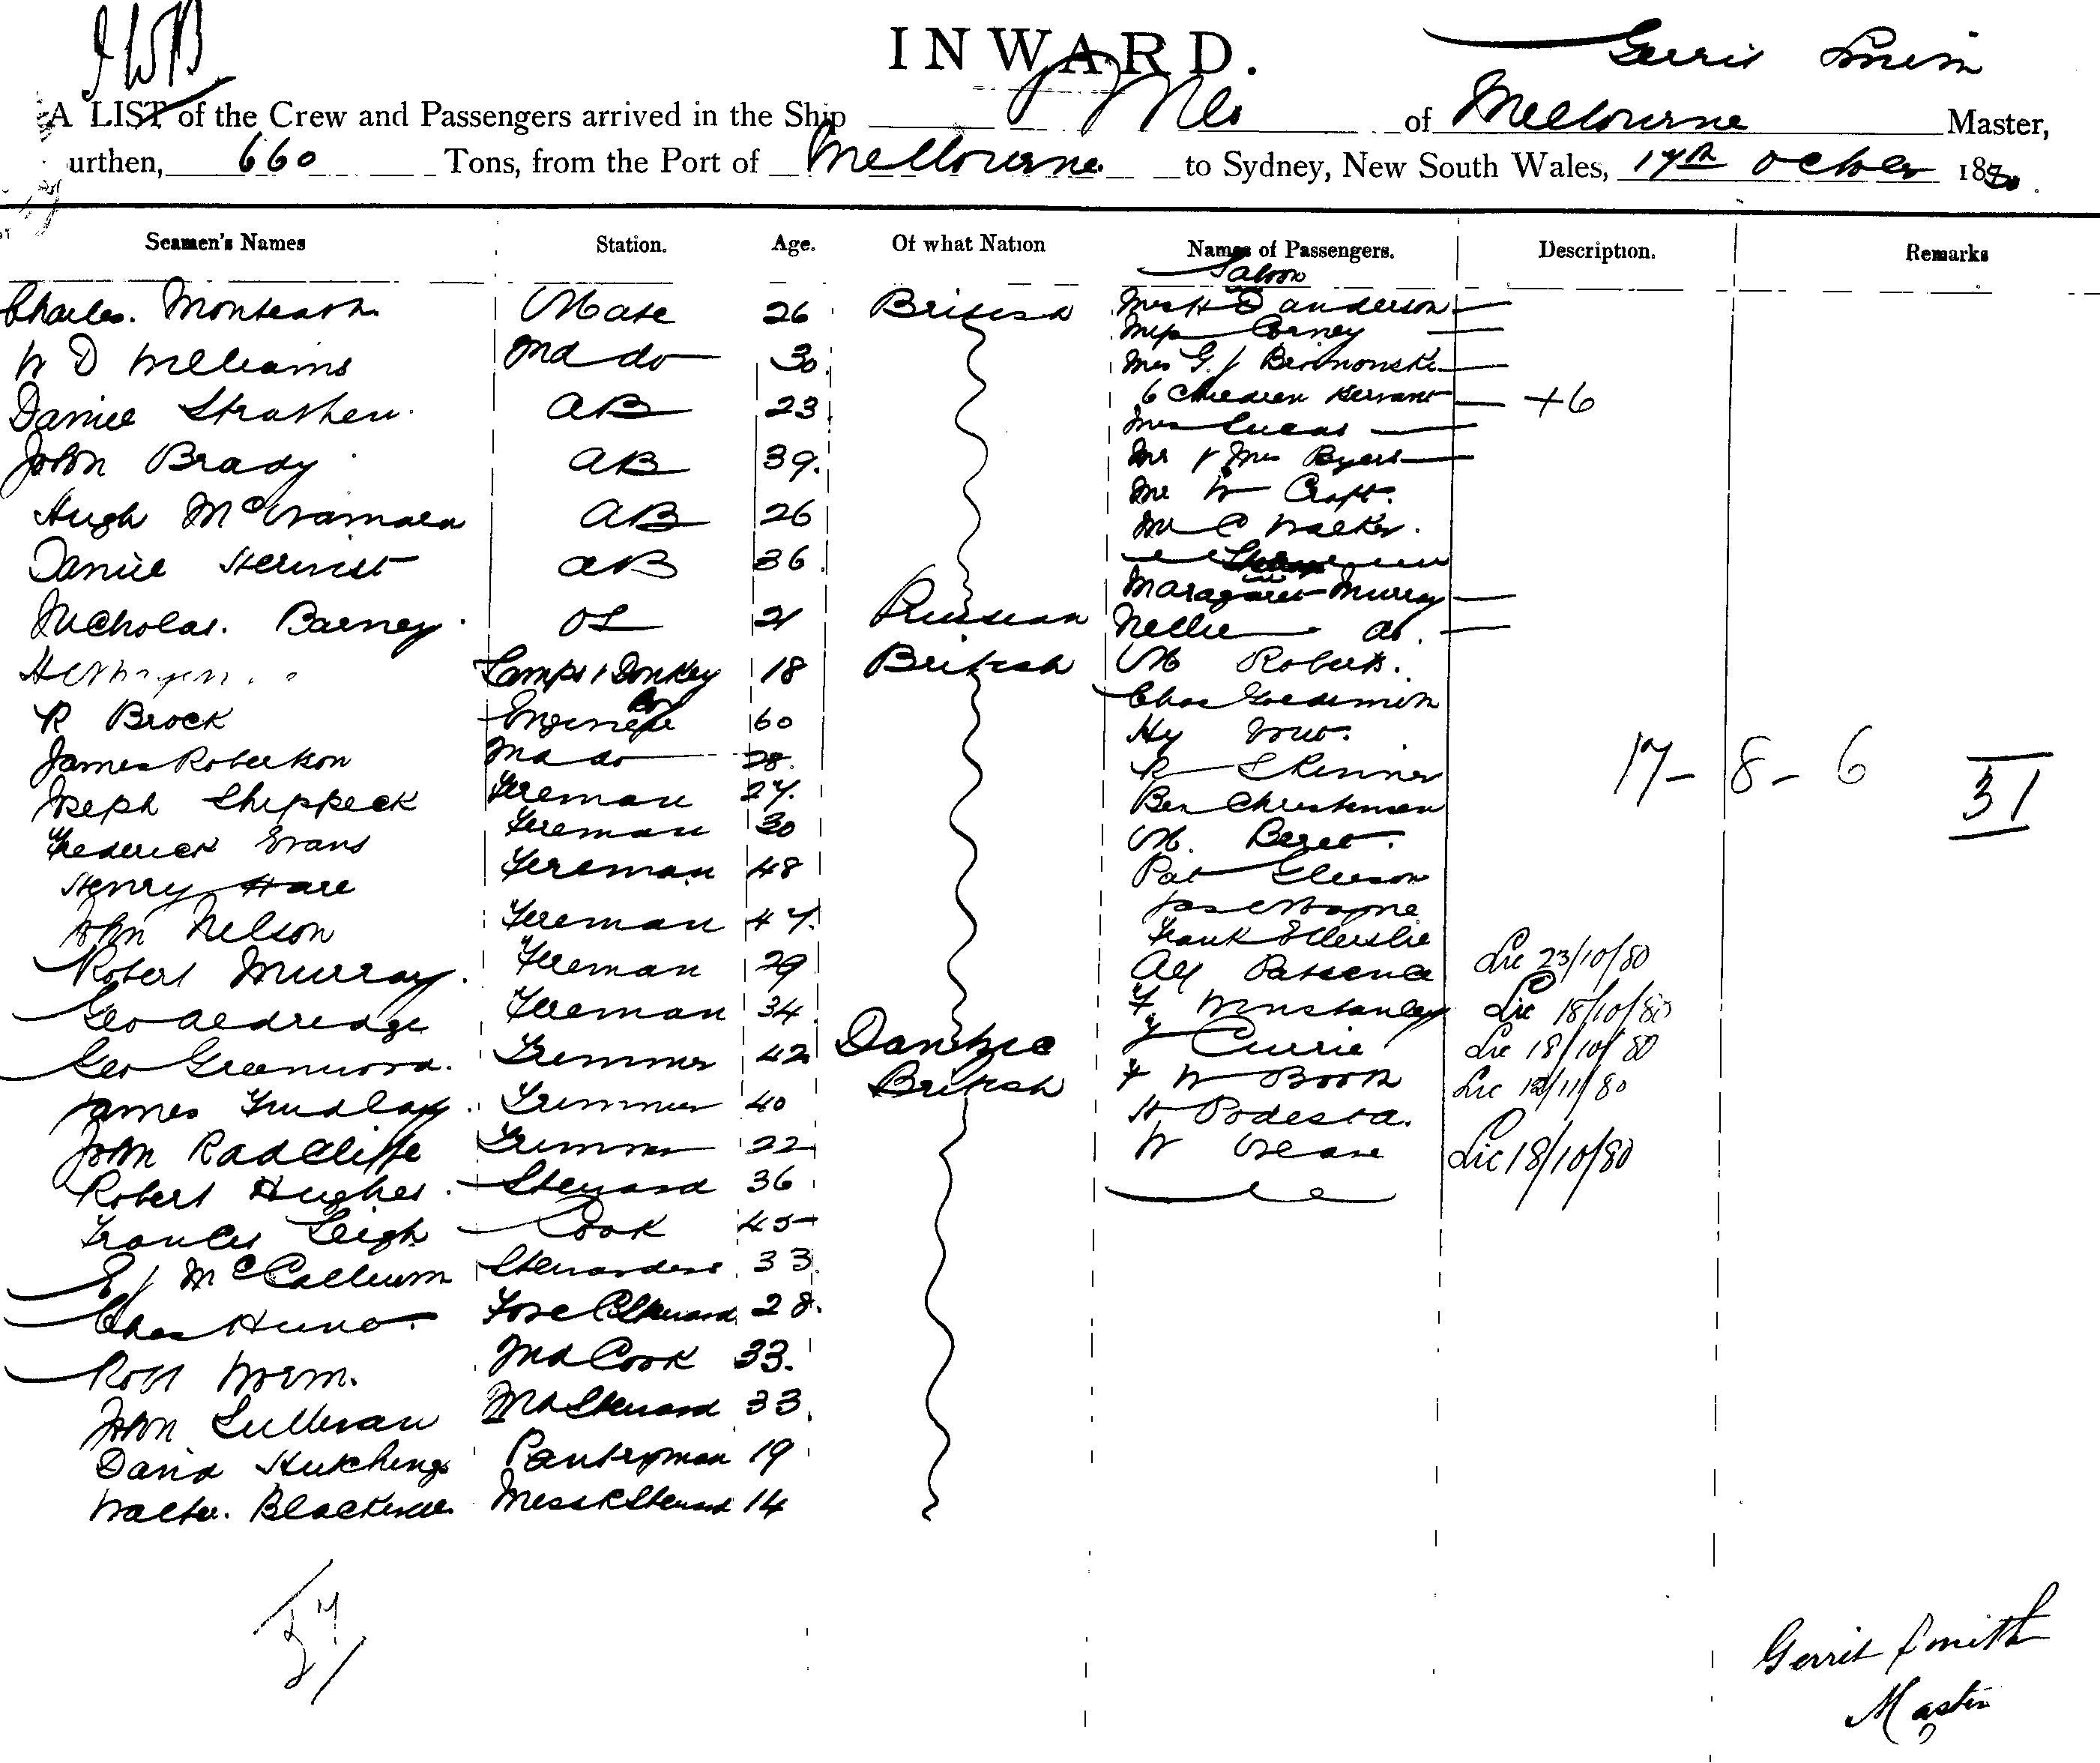 INWARD.
Gerrit Smith
A LIST of the Crew and Passengers arrived in the Ship of Melbourne Master,
urthen, 660 Tons, from the Port of Melbourne to Sydney, New South Wales, 17th October 1880.
Seamen's Names Station. Age. Of what Nation Names of Passengers. Description. Remarks
Saloon
Charles. Monteath Mate 26 British
W D Williams 2nd do 30
Daniel Strachen AB 23
John Brady AB 39.
Hugh McNamara AB 26
Daniel AB 36
Nicholas. Barney OS 21 Russian
Lamps & Donkey 18 British
R Brock Engineer 60
James Robertson 2nd do 28.
Joseph Shippeck Fireman 27.
Frederick Evans Fireman 30
Henry Hare Fireman 48
John Nelson Fireman 47.
Robert Murray. Fireman 29
Geo Aldredge Fireman 34
Geo Greenwood. Trimmer 42 Dantzic
James Findlay. Trimmer 40 British
John Radcliffe Trimmer 22
Robert Hughes. Steward 36
Frances Leigh Cook 45
E J McCallum Stewardess 33.
Chas Hunt. Fore C Steward 28.
Ross Worm. 2nd Cook 33.
John Sullivan 2nd Steward 33.
David Hutchings Pantryman 19
Walter. Messr Steward 14
Mrs H D Anderson
Miss Corney
Mrs G J
6 Children Servant +6
Mrs Lucas
Mr & Mrs Byers
Mr W Croft.
Mr C Walker.
Steerage
Maragaret Murray
Nellie do.
M Roberts.
Chas
Hy
R Skinner
Ben Christensen
M.
Pat Gleeson
Jas
Frank Ellerslie
Alf Patience Lic 23/10/80
F Winstanley Lic 18/10/80
J Currie Lic 18/10/80
F W Booth Lic 12/11/80
H Podesta.
W Lic 18/10/80
17 - 8 - 6 31
27
Gerrit Smith
Master